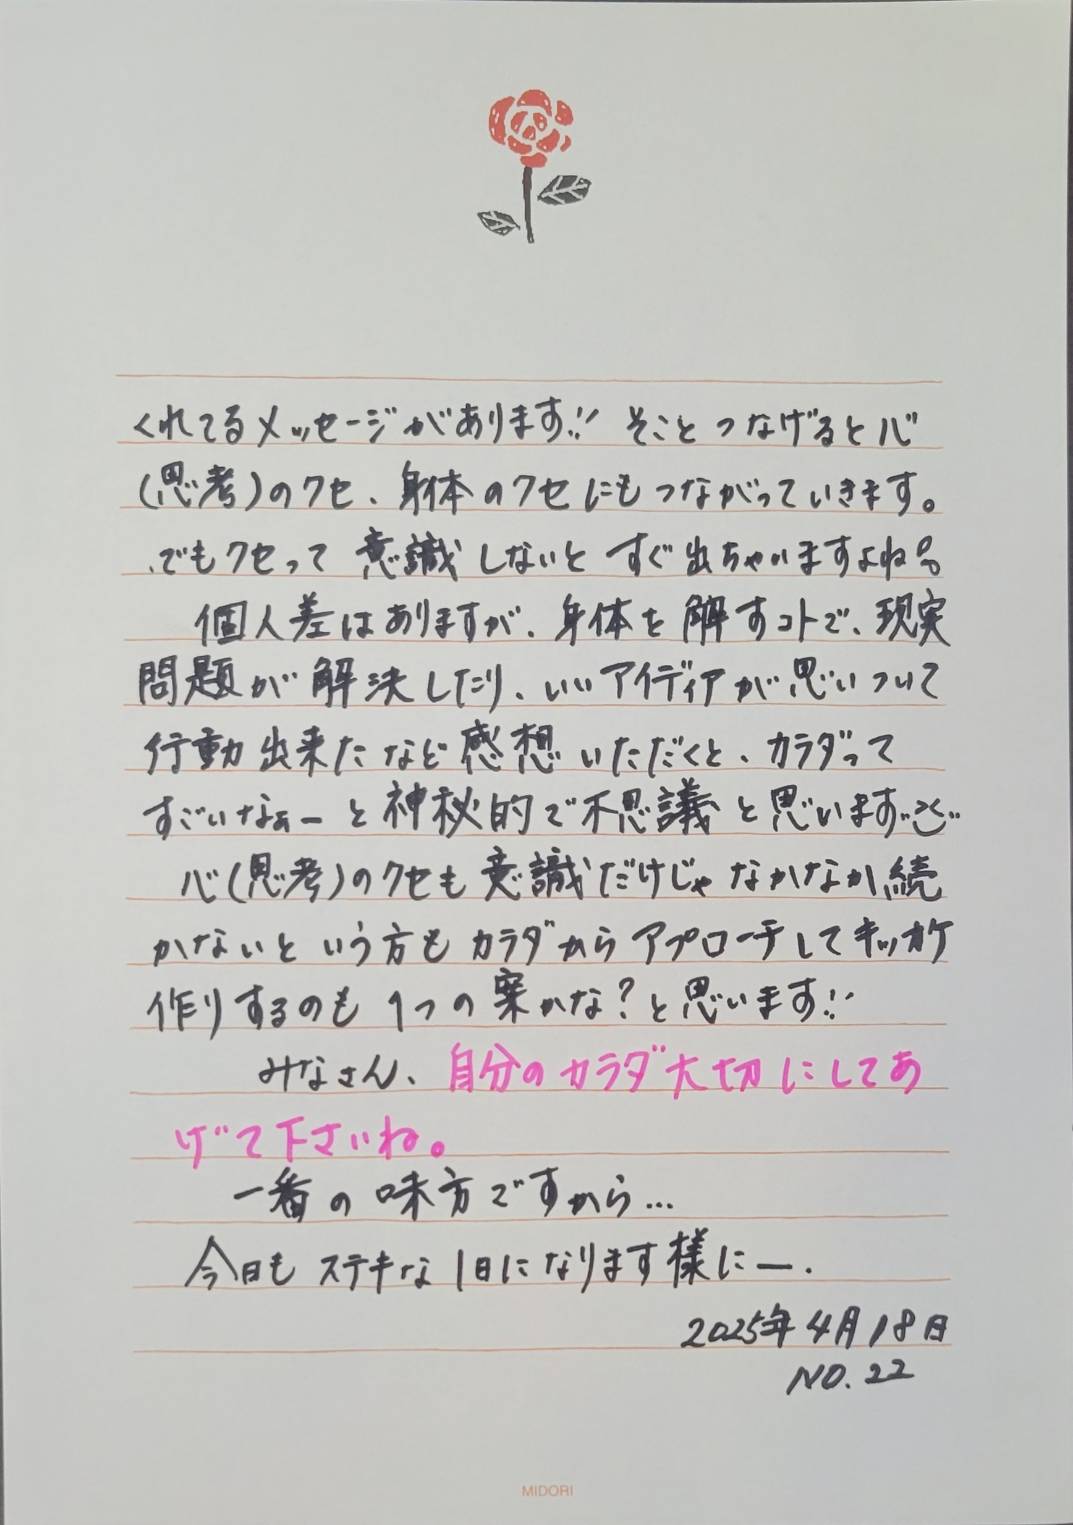 くれてるメッセージがあります!! そことつなげると心
(思考)のクセ、身体のクセにもつながっていきます。
でもクセって意識しないとすぐ出ちゃいますよね。
個人差はありますが、身体を解すコトで、現実
問題が解決したり、いいアイディアが思いついて
行動出来たなど感想いただくと、カラダって
すごいなぁーと神秘的で不思議と思います
心(思考)のクセも意識だけじゃなかなか続
かないという方もカラダからアプローチしてキッカケ
作りするのも1つの案かな?と思います!!
みなさん、自分のカラダ大切にしてあ
げて下さいね。
一番の味方ですから...
今日もステキな1日になります様にー.
2025年4月18日
NO.22
MIDORI